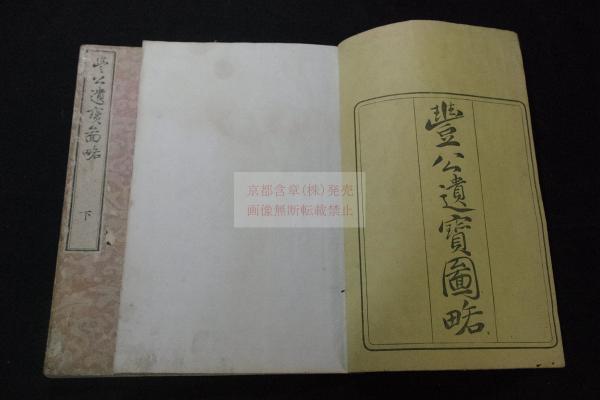 豐公遺寳啚略
豐公遺寳圖略
下
京都含章(株)発売
画像無断転載禁止